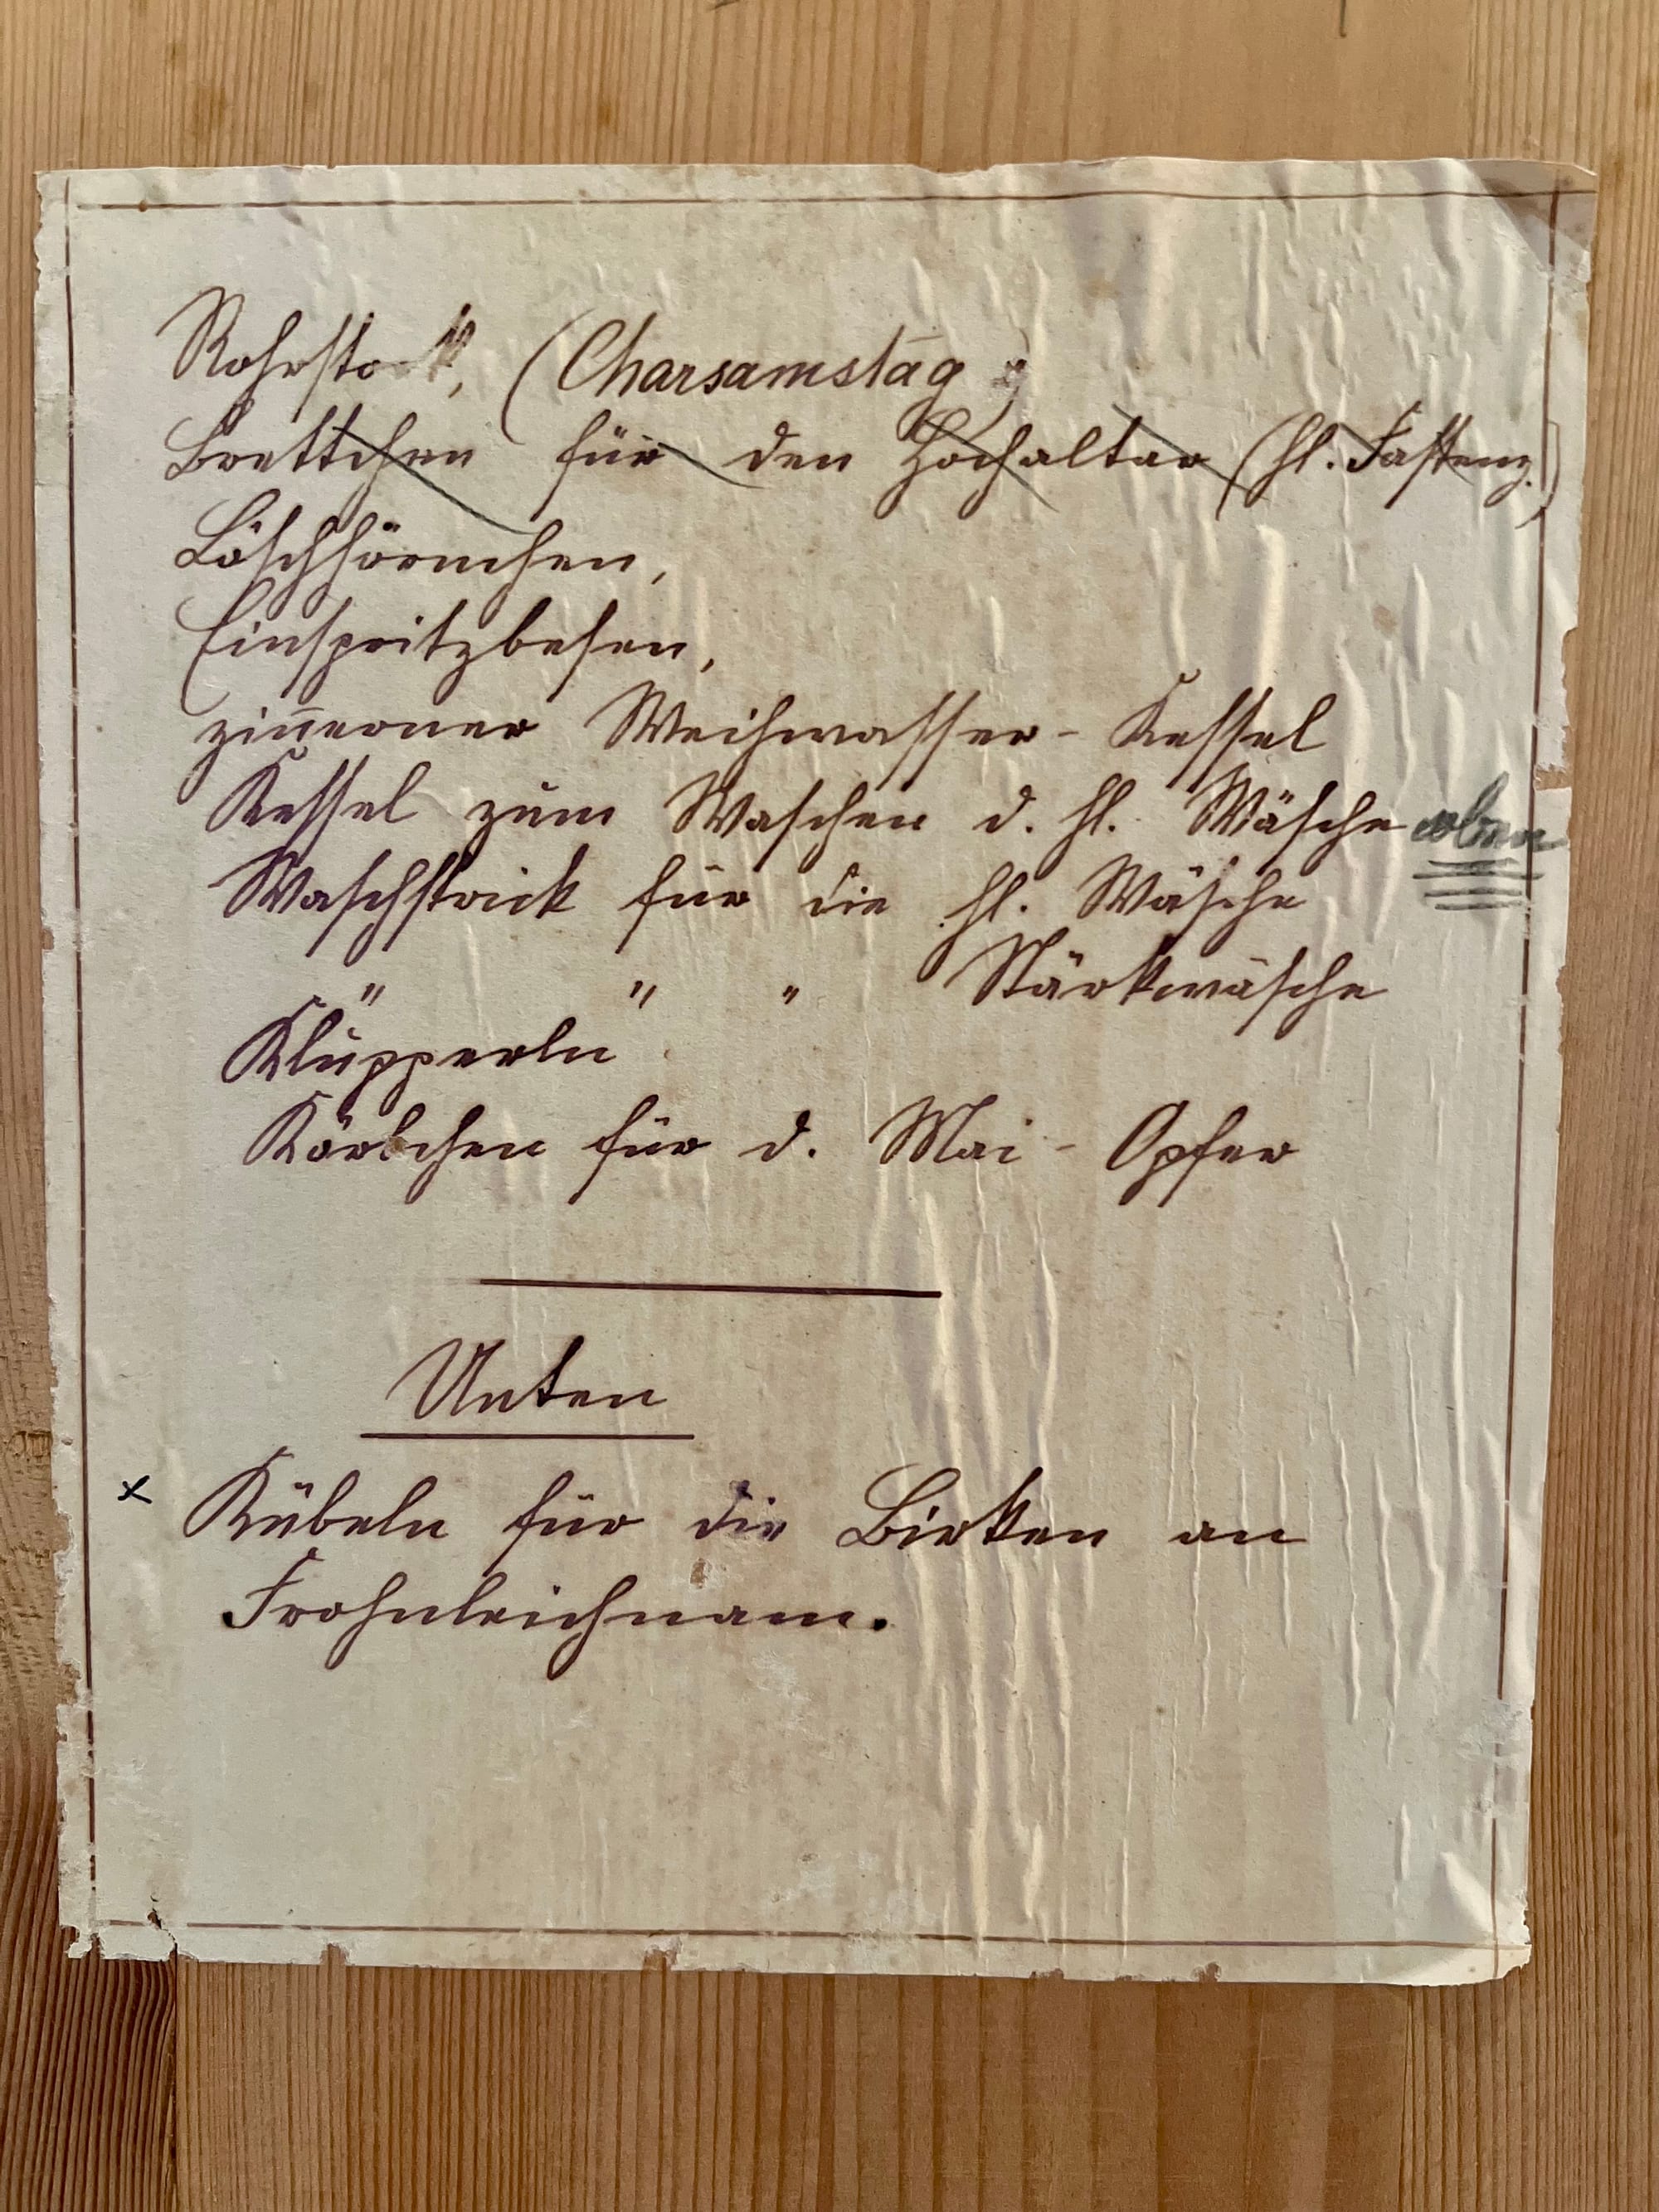 Rohrstock, (Charsamstag)
Brettchen für den Hochaltar (hl. Fastenz.)
Löschhörnchen,
Einspritzbesen,
zin̄erner Weihwasser-Kessel
Kessel zum Waschen d. hl. Wäsche oben
Waschstrick für die hl. Wäsche
" " " Stärkwäsche
Klupperln
Körbchen für d. Mai-Opfer
Unten
x Kübeln für die Birken an
Frohnleichnam.